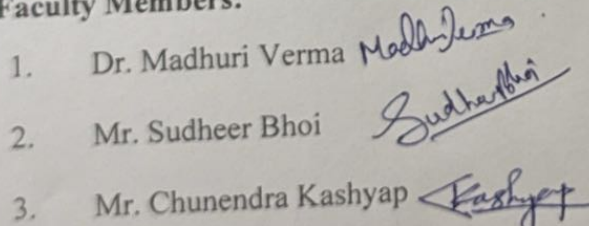 Faculty Members:
1. Dr. Madhuri Verma Madhuri Verma
2. Mr. Sudheer Bhoi Sudheer Bhoi
3. Mr. Chunendra Kashyap Kashyap